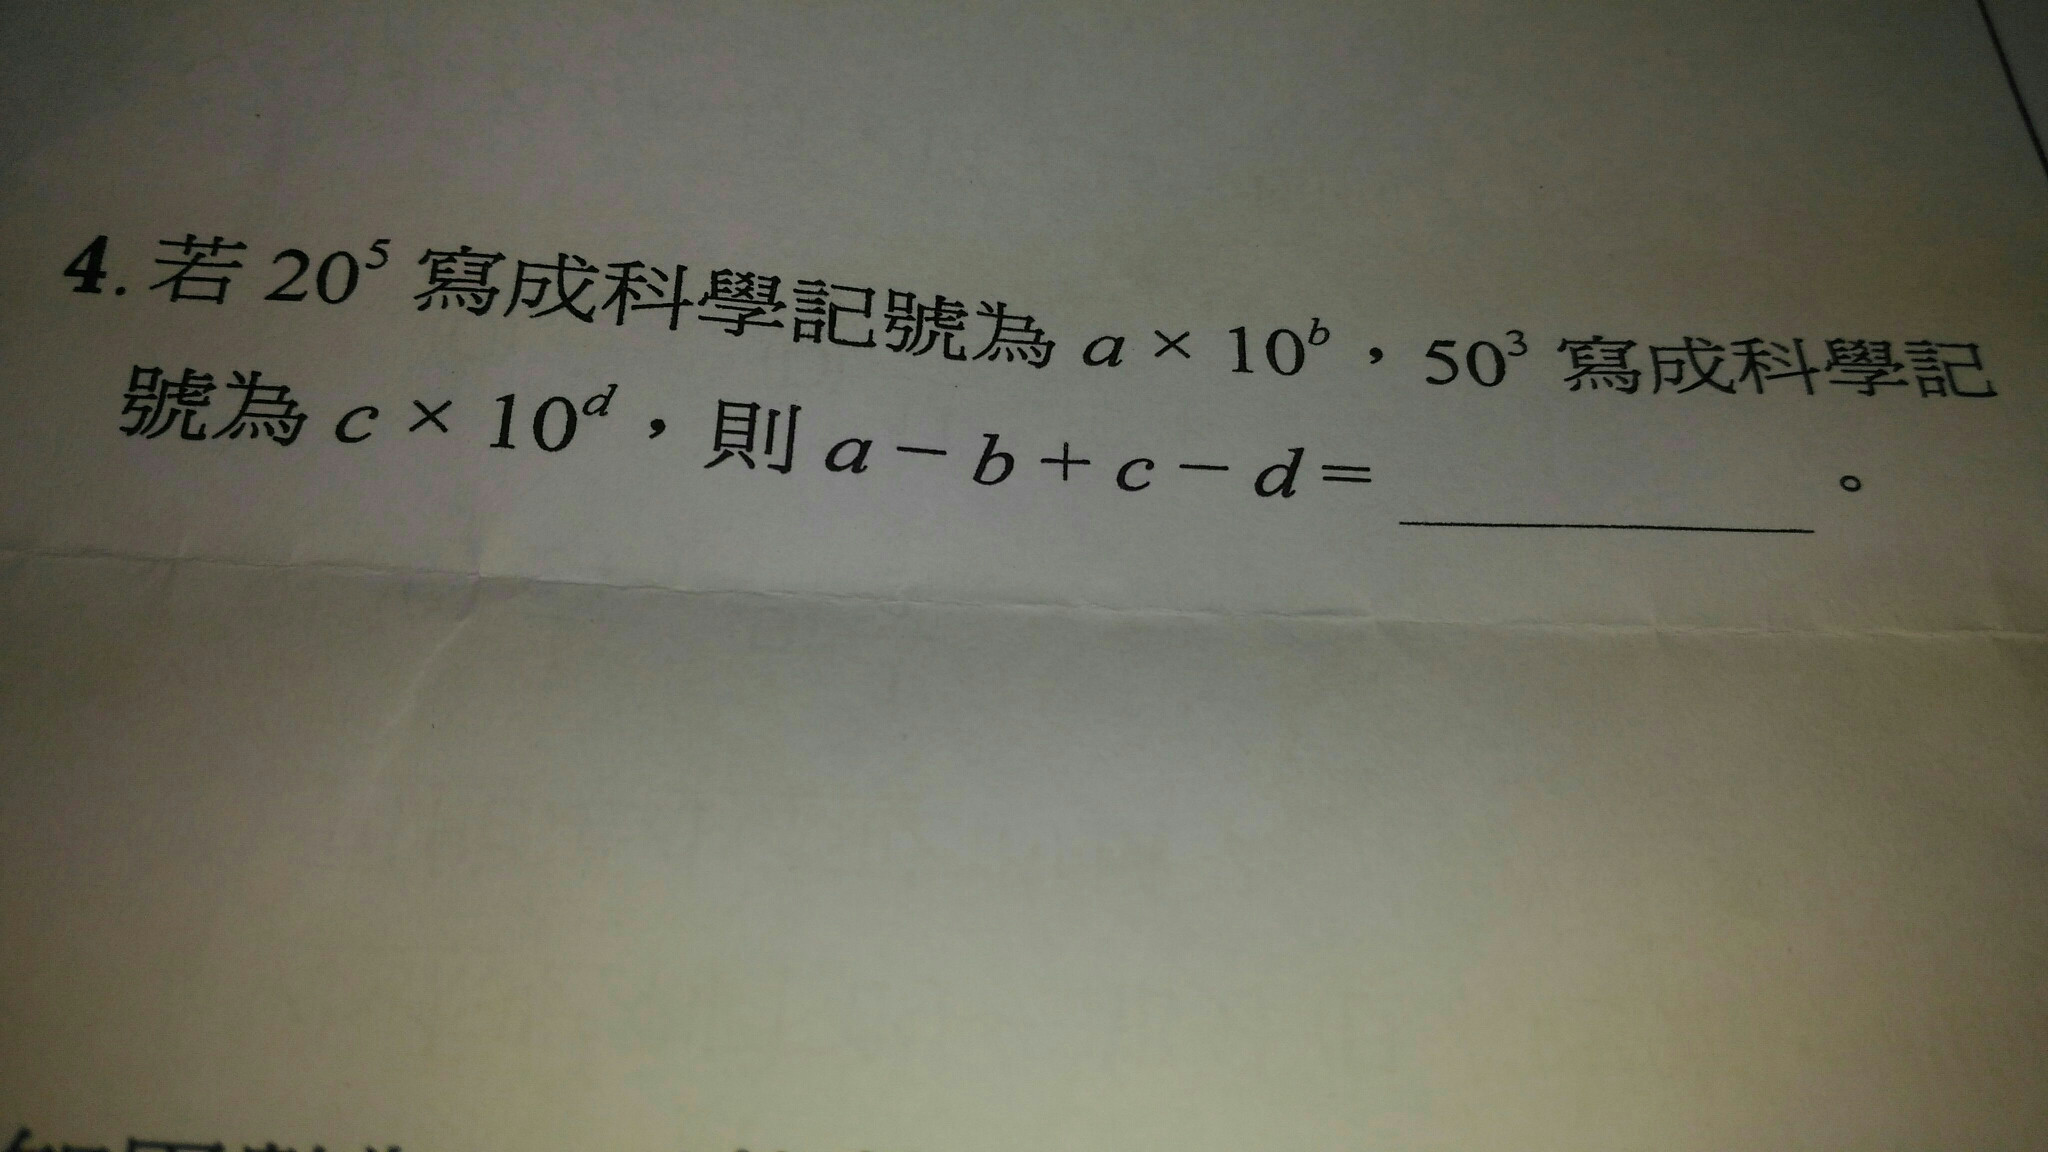 4. 若 20⁵ 寫成科學記號為 a × 10ᵇ，50³ 寫成科學記
號為 c × 10ᵈ，則 a − b + c − d = ＿＿＿＿。